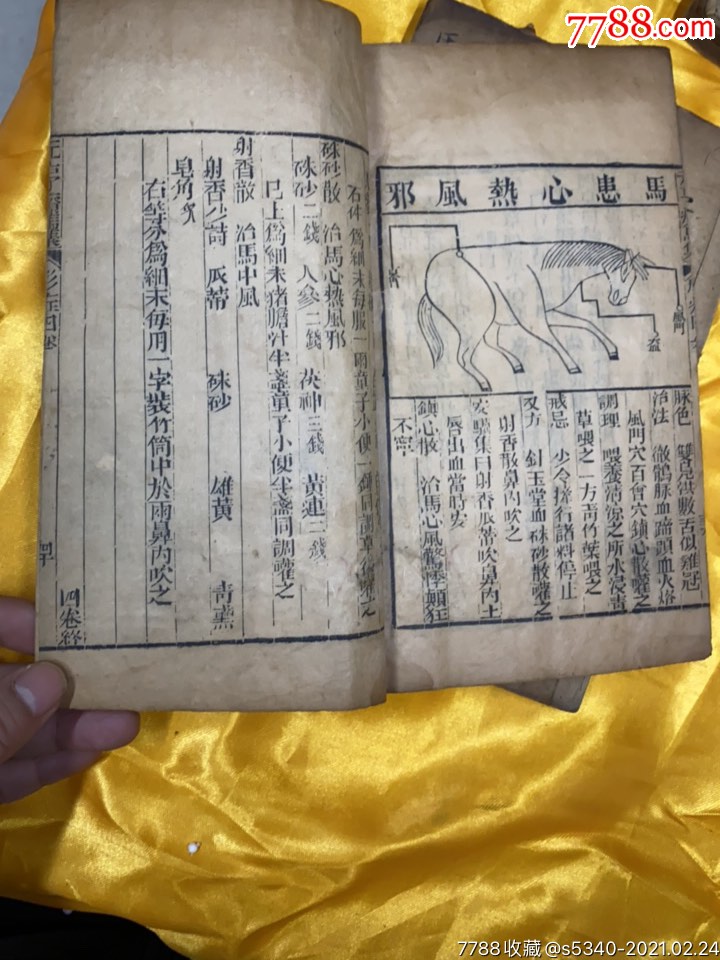 7788.com
馬患心熱風邪
脉色 雙鳧洪數舌似雞冠
治法 徹鶻脉血蹄頭血火烙
風門穴百會穴鎮心散嚾之
調理 喂養清凉之所水浸青
草喂之一方青竹葉喂之
戒忌 少令搓行諸料停止
又方 針玉堂血硃砂散嚾之
射香散鼻内吹之
安驥集曰射香瓜蒂吹鼻内土
唇出血當時安
鎮心散 治馬心風驚悸顛狂
不寧
為細末每服一兩童子小便一
同調草
硃砂散 治馬心熱風邪
硃砂二錢 人參二錢 茯神三錢 黄連二錢
已上為細末猪膽汁半盞童子小便半盞同調嚾之
射香散 治馬中風
射香少許 瓜蒂 硃砂 雄黄
皂角
右等分為細末每用一字裝竹筒中於兩鼻内吹之
四卷終
7788收藏@s5340-2021.02.24